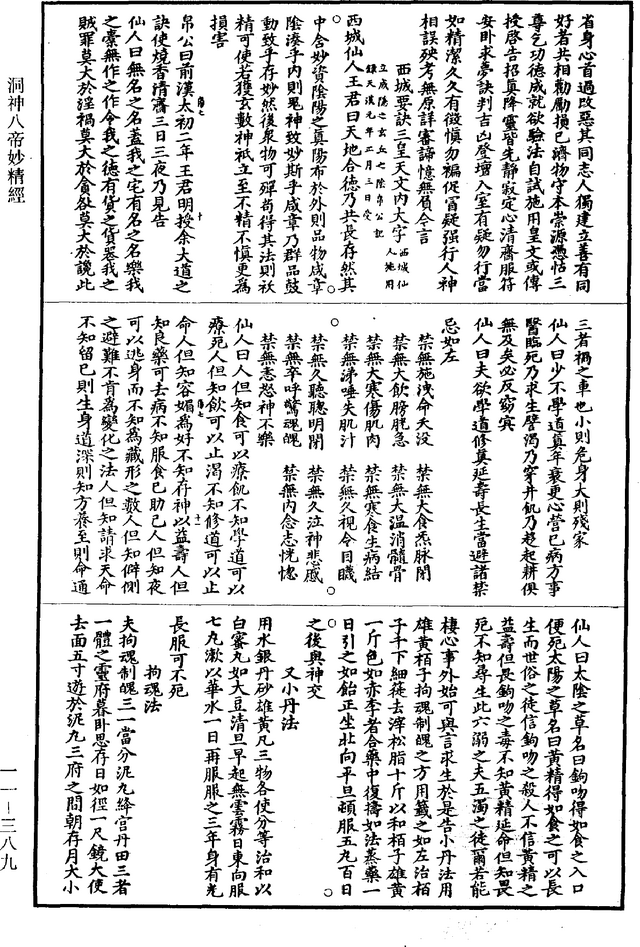 洞神八帝妙精經
省身心首過改惡其同志人獨建立善有同
好者共相勸勵損己濟物守本崇源憑怙三
尊乞功德成就欲驗法自試施用皇文或傳
授啓告招真降靈皆先靜寂定心清齋服符
安卧求夢訣判吉凶登壇入室有疑勿行當
如精潔久久有徵慎勿褊促冒疑强行人神
相誤殃考無原詳審諦憶無負今言
西城要訣三皇天文内大字西城仙人施用
立成隱之玄丘七陰帛公記
鎌天漢元年二月三日受
西城仙人王君曰天地合德乃共長存然其
中舍妙資陰陽之真陽布於外則品物咸章
陰湊乎内則鬼神致妙斯乎咸章乃群品鼓
動致乎存妙然後衆物可殫尚得其法則祅
精可使若獲玄數神祇立至不精不慎更爲
損害
帛公曰前漢太初二年王君明授余大道之
訣使燒香清齋三日三夜乃見告
仙人曰無名之名蓋我之宅有名之名樂我
之橐無作之作令我之德有貨之貨器我之
賊罪莫大於淫禍莫大於貪欲莫大於讒此
三者禍之車也小則危身大則殘家
仙人曰少不學道真年衰更心營已病方事
醫臨死乃求生譬渴乃穿井飢乃趍起耕俟
無及矣必反窈冥
仙人曰夫欲學道修真延壽長生當避諸禁
忌如左
禁無施洩命夭没 禁無大食炁脉閉
禁無大飲膀胱急 禁無大温消髓骨
禁無大寒傷肌肉 禁無寒食生病結
禁無涕唾失肌汁 禁無久視令目䁾
禁無久聽聰明閉 禁無久泣神悲慼
禁無卒呼驚魂魄 禁無内念志恍惚
禁無恚怒神不樂
仙人曰人但知食可以療飢不知學道可以
療死人但知飲可以止渴不知修道可以止
命人但知容媚爲好不知存神以益壽人但
知良藥可去病不知服食已助己人但知夜
可以逃身而不知爲藏形之數人但知僻側
之避難不肯爲變化之法人但知請求天命
不知留已則生身道深則知方養至則命通
仙人曰太陰之草名曰鉤吻得如食之入口
便死太陽之草名曰黄精得如食之可以長
生而世俗之徒信鉤吻之殺人不信黄精之
益壽但畏鉤吻之毒不知黄精延命但知畏
死不知尋生此六溺之夫五濁之徒爾若能
棲心事外始可與言求生於是告小丹法用
雄黄栢子拘魂制魄之方用籤之如左治栢
子千下細簁去滓松脂十斤以和栢子雄黄
一斤色如赤李者合藥中復擣如法蒸藥一
日引之如飴正坐壯向平旦頓服五九百日
之後與神交
又小丹法
用水銀丹砂雄黄凡三物各使分等治和以
白蜜丸如大豆清旦早起無雲霧日東向服
七九漱以華水一日再服服之三年身有光
長服可不死
拘魂法
夫拘魂制魄三一當分泥丸絳宫丹田三者
一體之靈府暮卧思存日如徑一尺鏡大使
去面五寸遊於泥丸三府之間朝存月大小
一一－三八九